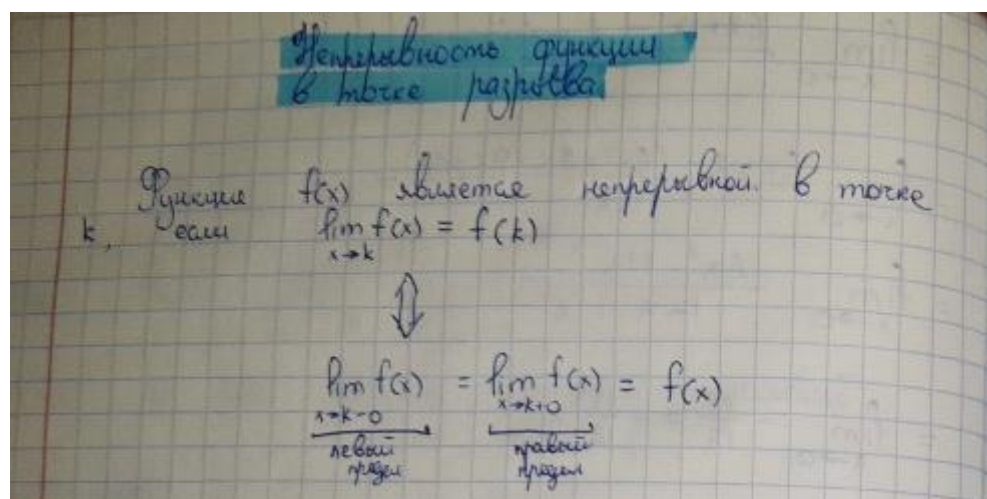 Непрерывность функции
в точке разрыва
Функция f(x) является непрерывной в точке
k, если lim f(x) = f(k)
x→k
⇕
lim f(x) = lim f(x) = f(x)
x→k-0 x→k+0
левый правый
предел предел